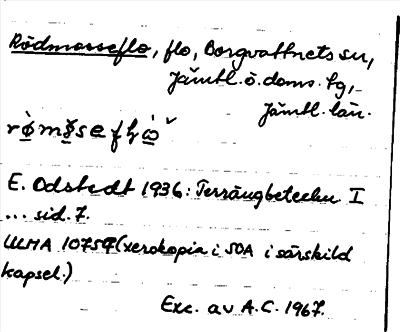 Rödmosseflo, flo, Borgvattnets sn,
Jämtl. ö. doms. tg,
Jämtl. län.
E. Odstedt 1936: Terrängbeteckn I
... sid. 7.
ULMA 10759 (xerokopia i SOA i särskild
kapsel.)
Exc. av A.C. 1967.